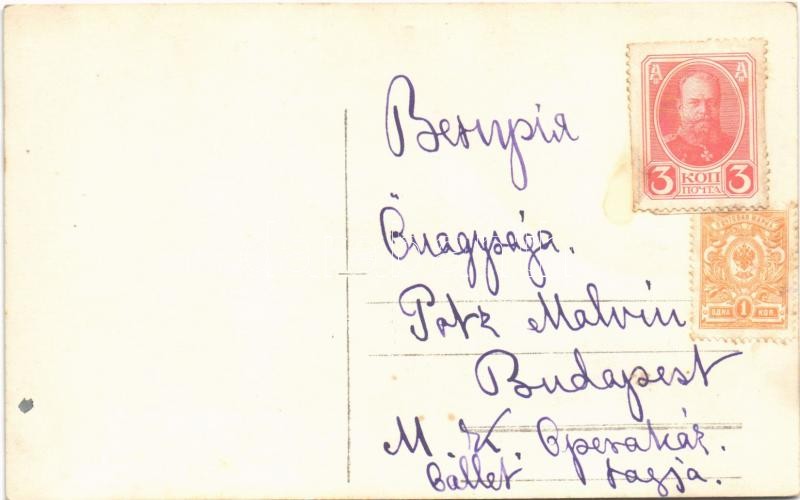 Венгрія
Őnagysága.
Potz Malvin
Budapest
M. K. Operaház.
ballet tagja.
3 КОП 3
ПОЧТА
ПОЧТОВАЯ МАРКА
ОДНА 1 КОП.